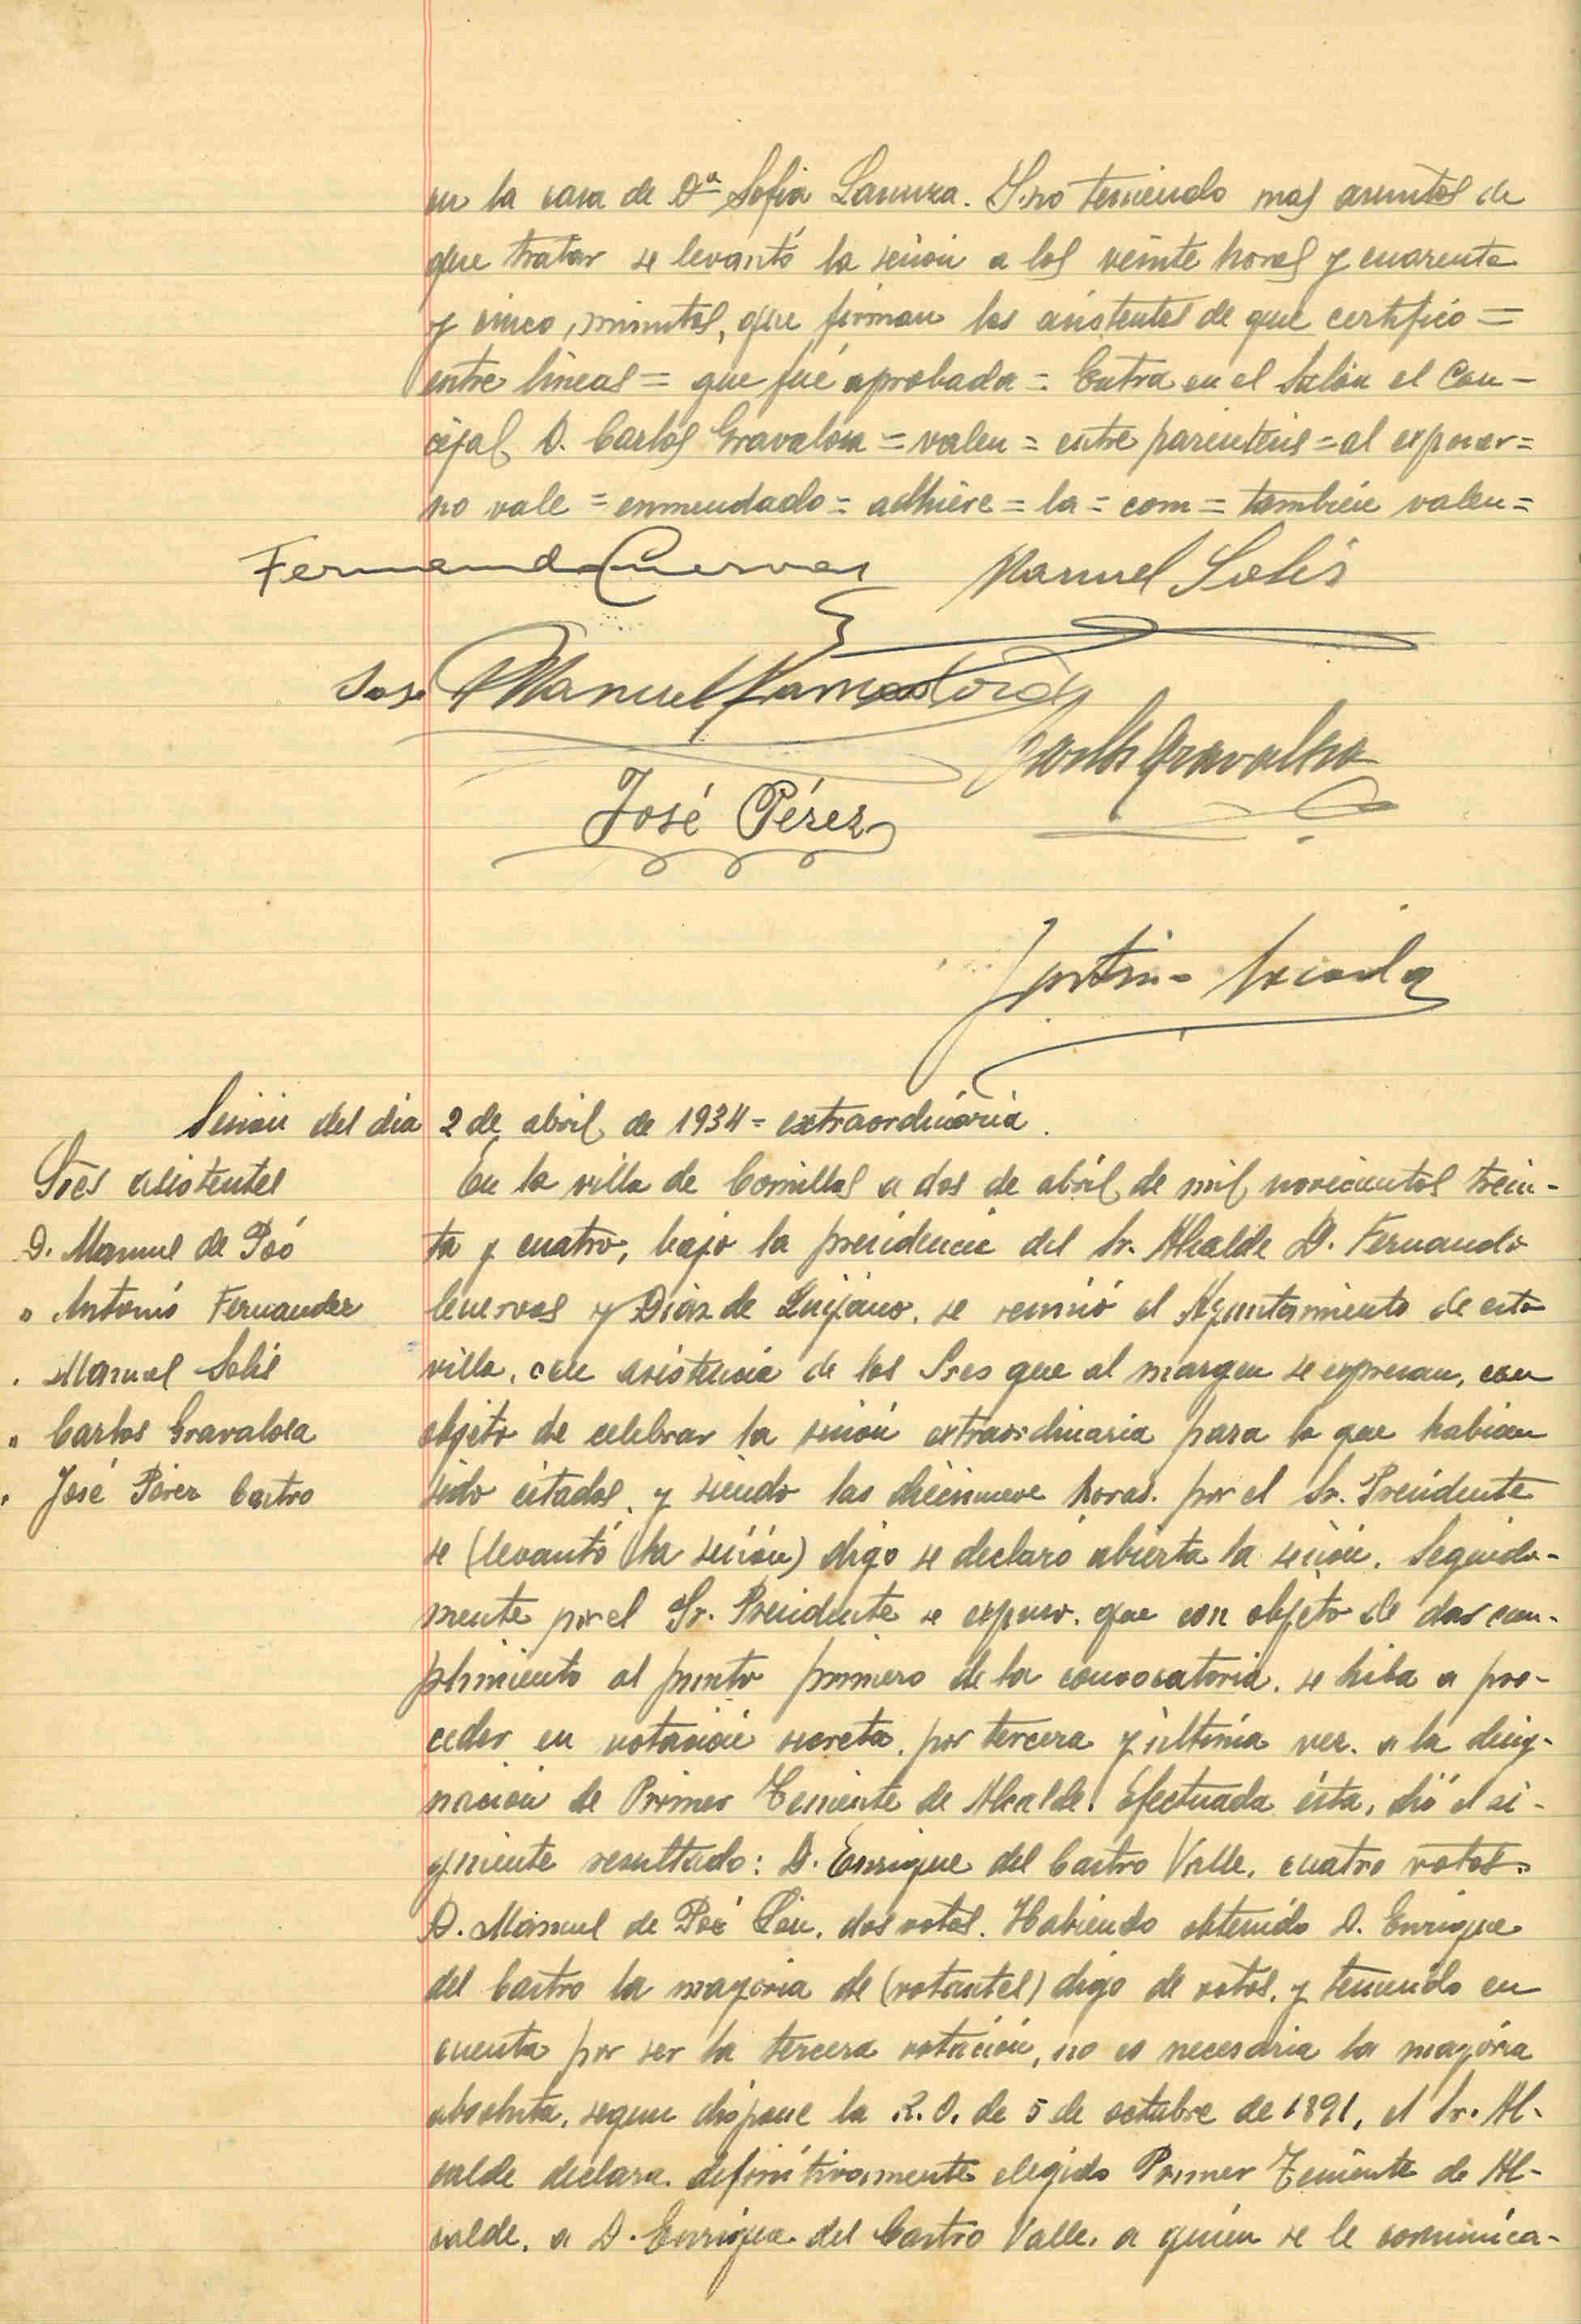 en la casa de Dª Sofia Lamuza. Y no teniendo mas asuntos de
que tratar se levantó la sesión a las veinte horas y cuarenta
y cinco, minutos, que firman los asistentes de que certifico =
entre lineas = que fué aprobada = Entra en el Salón el Con-
cejal D. Carlos Gravalosa = valen = entre parentesis = al exponer =
no vale = enmendado = adhiere = la = com = también valen =
Fernando Cuervas Manuel Solis
Jose Manuel
Carlos Gravalosa
José Pérez
Sesión del dia 2 de abril de 1934 = extraordinaria.
Sres asistentes
D. Manuel de Poó
" Antonio Fernandez
. Manuel Solis
" Carlos Gravalosa
" José Pérez Castro
En la villa de Comillas a dos de abril de mil novecientos trein-
ta y cuatro, bajo la presidencia del Sr. Alcalde D. Fernando
Cuervas y Diaz de Quijano, se reunió el Ayuntamiento de esta
villa, con asistencia de los Sres que al margen se expresan, con
objeto de celebrar la sesión extraordinaria para lo que habian
sido citados, y siendo las diecinueve horas. por el Sr. Presidente
se (levantó la sesión) digo se declaró abierta la sesión. Seguida-
mente por el Sr. Presidente se expuso. que con objeto de dar cum-
plimiento al punto primero de la convocatoria. se hiba a pro-
ceder en votación secreta. por tercera y ultima vez. a la desig-
nación de Primer Teniente de Alcalde. Efectuada ésta, dió el si-
guiente resultado: D. Enrique del Castro Valle. cuatro votos.
D. Manuel de Poó dos votos. Habiendo obtenido D. Enrique
del Castro la mayoria de (votantes) digo de votos, y teniendo en
cuenta por ser la tercera votación, no es necesaria la mayoria
absoluta, segun dispone la R.O. de 5 de octubre de 1891, el Sr. Al-
calde declara definitivamente elegido Primer Teniente de Al-
calde, a D. Enrique del Castro Valle, a quien se le comunica-